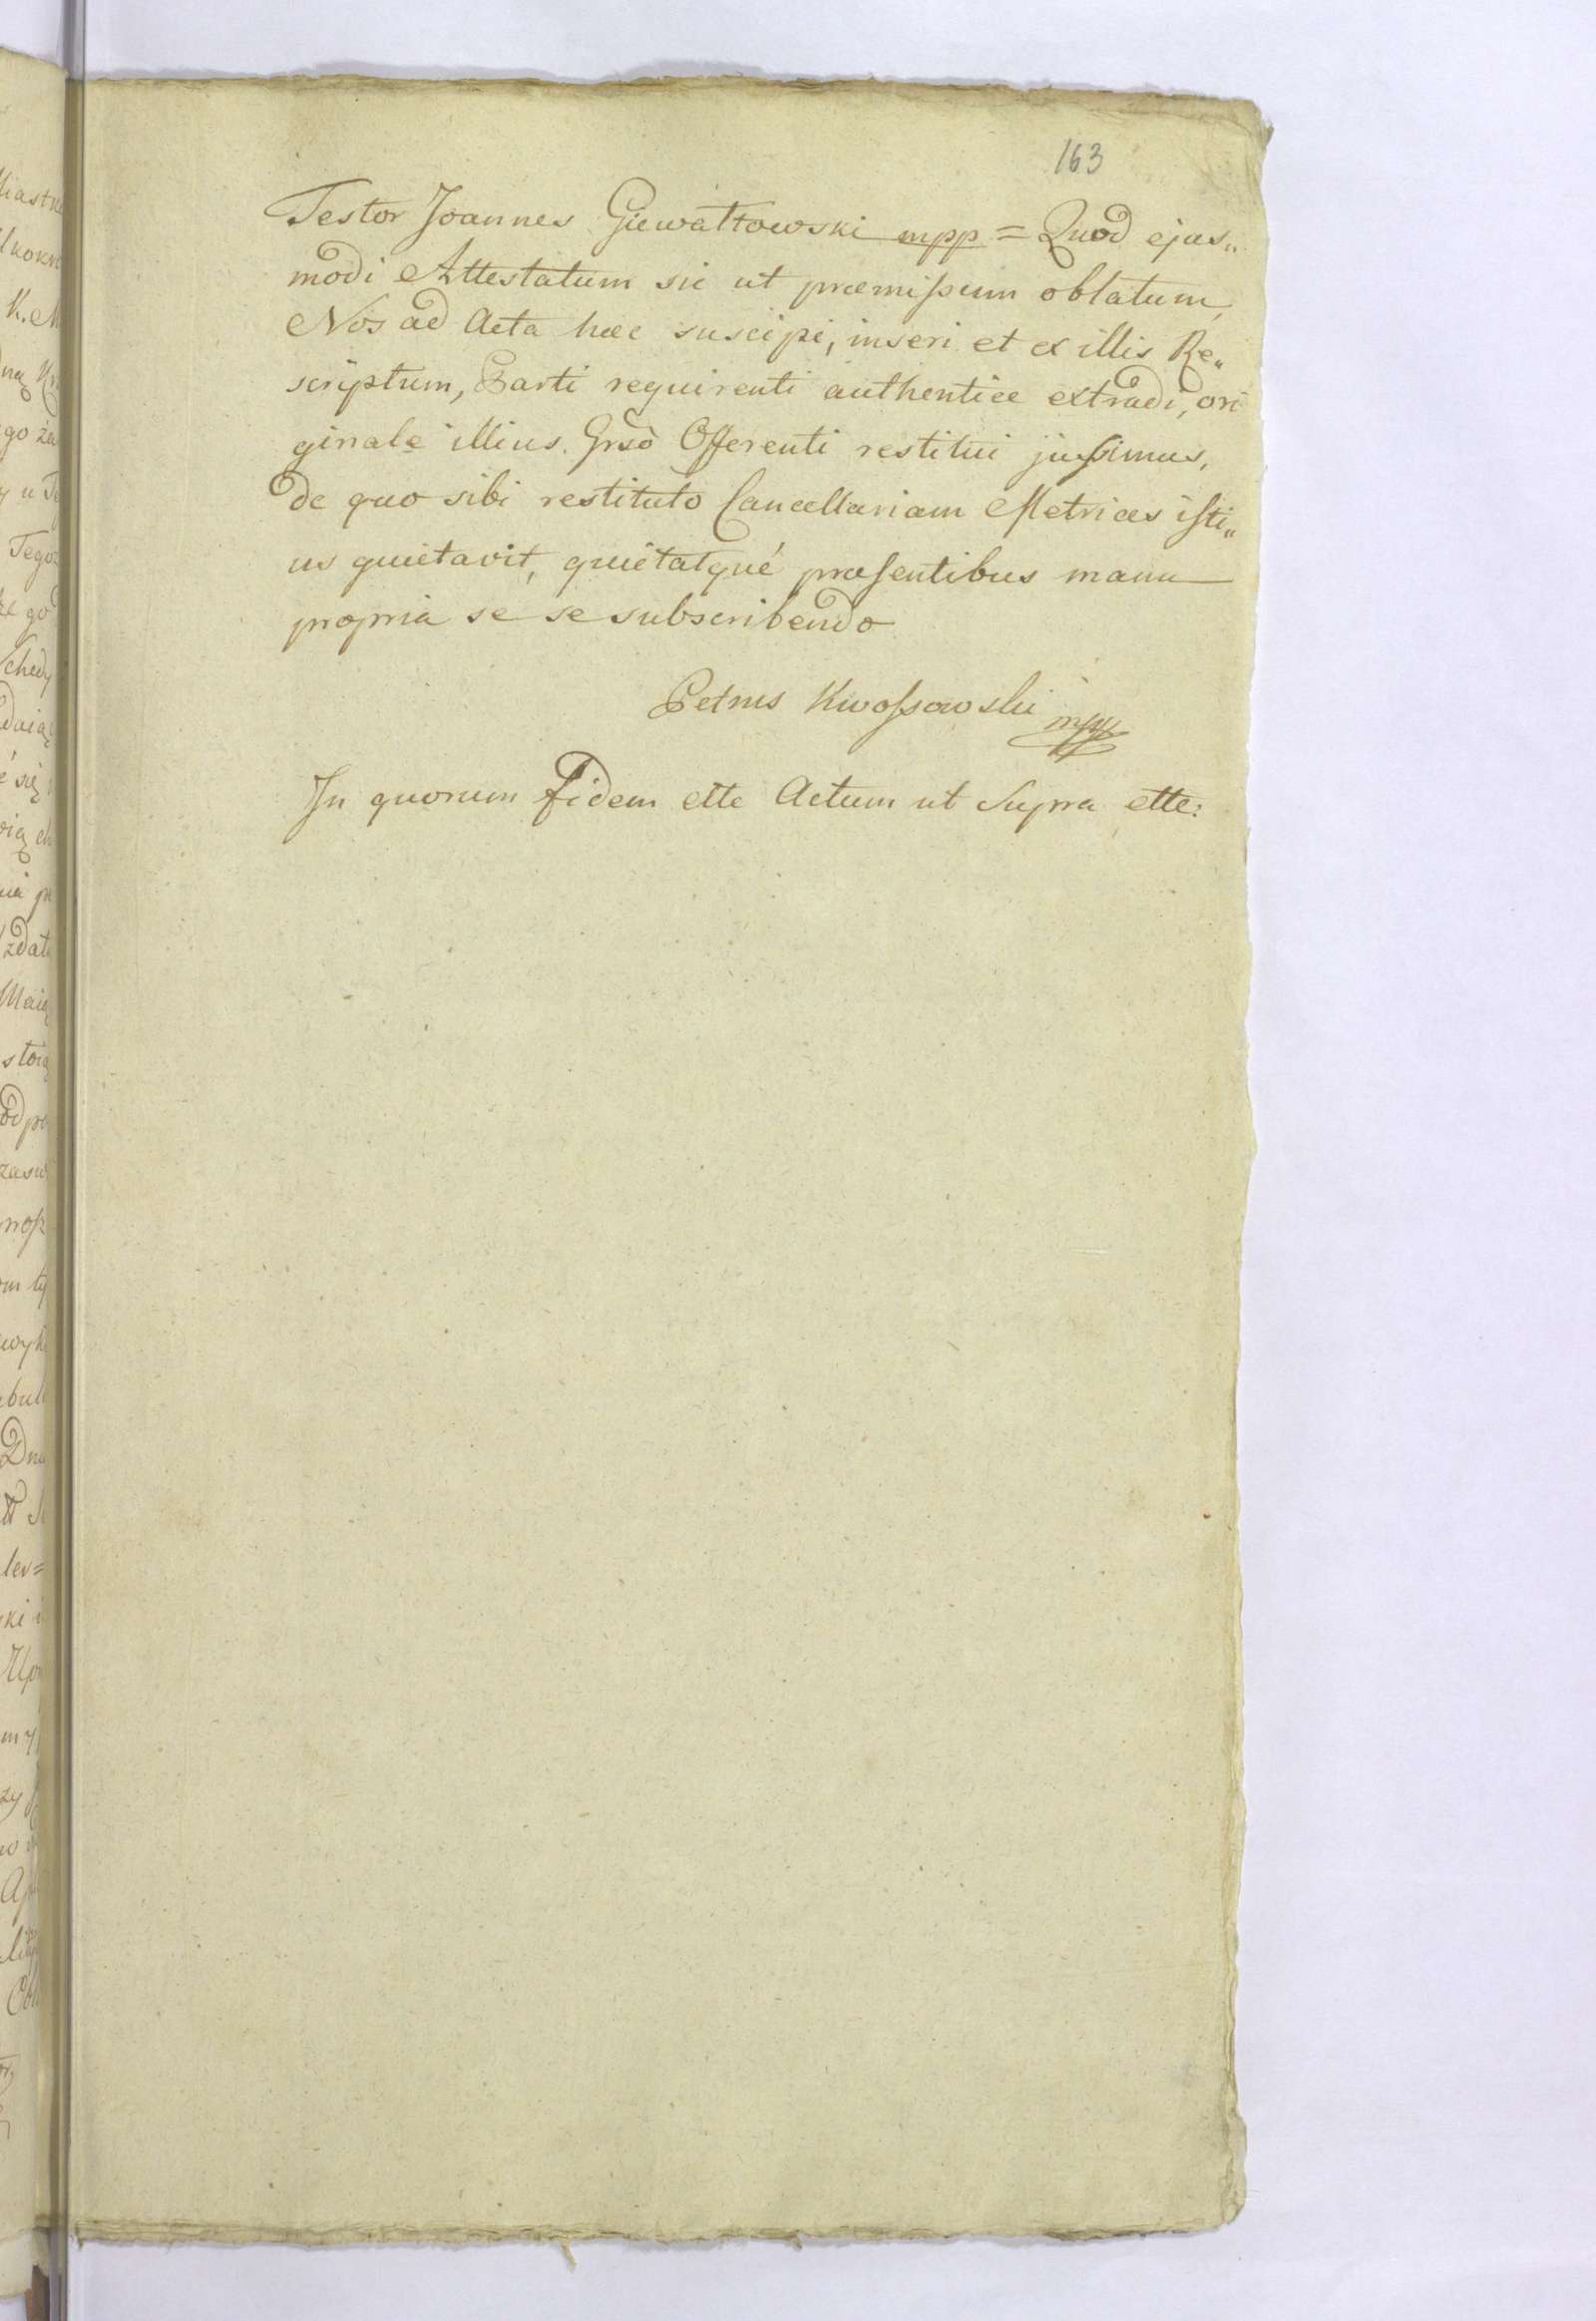 163
Testor Joannes Giewałtowski mpp = Quod ejus„
modi Attestatum sic ut præmissum oblatum,
Nos ad Acta hæc suscipi, inseri et ex illis Re„
scriptum, Parti requirenti authentice extradi, ori
ginale illius Grsò Offerenti restitui jussimus,
de quo sibi restituto Cancellariam Metrices isti„
us quietavit, quietatqué præsentibus manu
propria se se subscribendo
Petrus Kwossowski mpp
In quorum fidem ettc Actum ut Supra ettc: